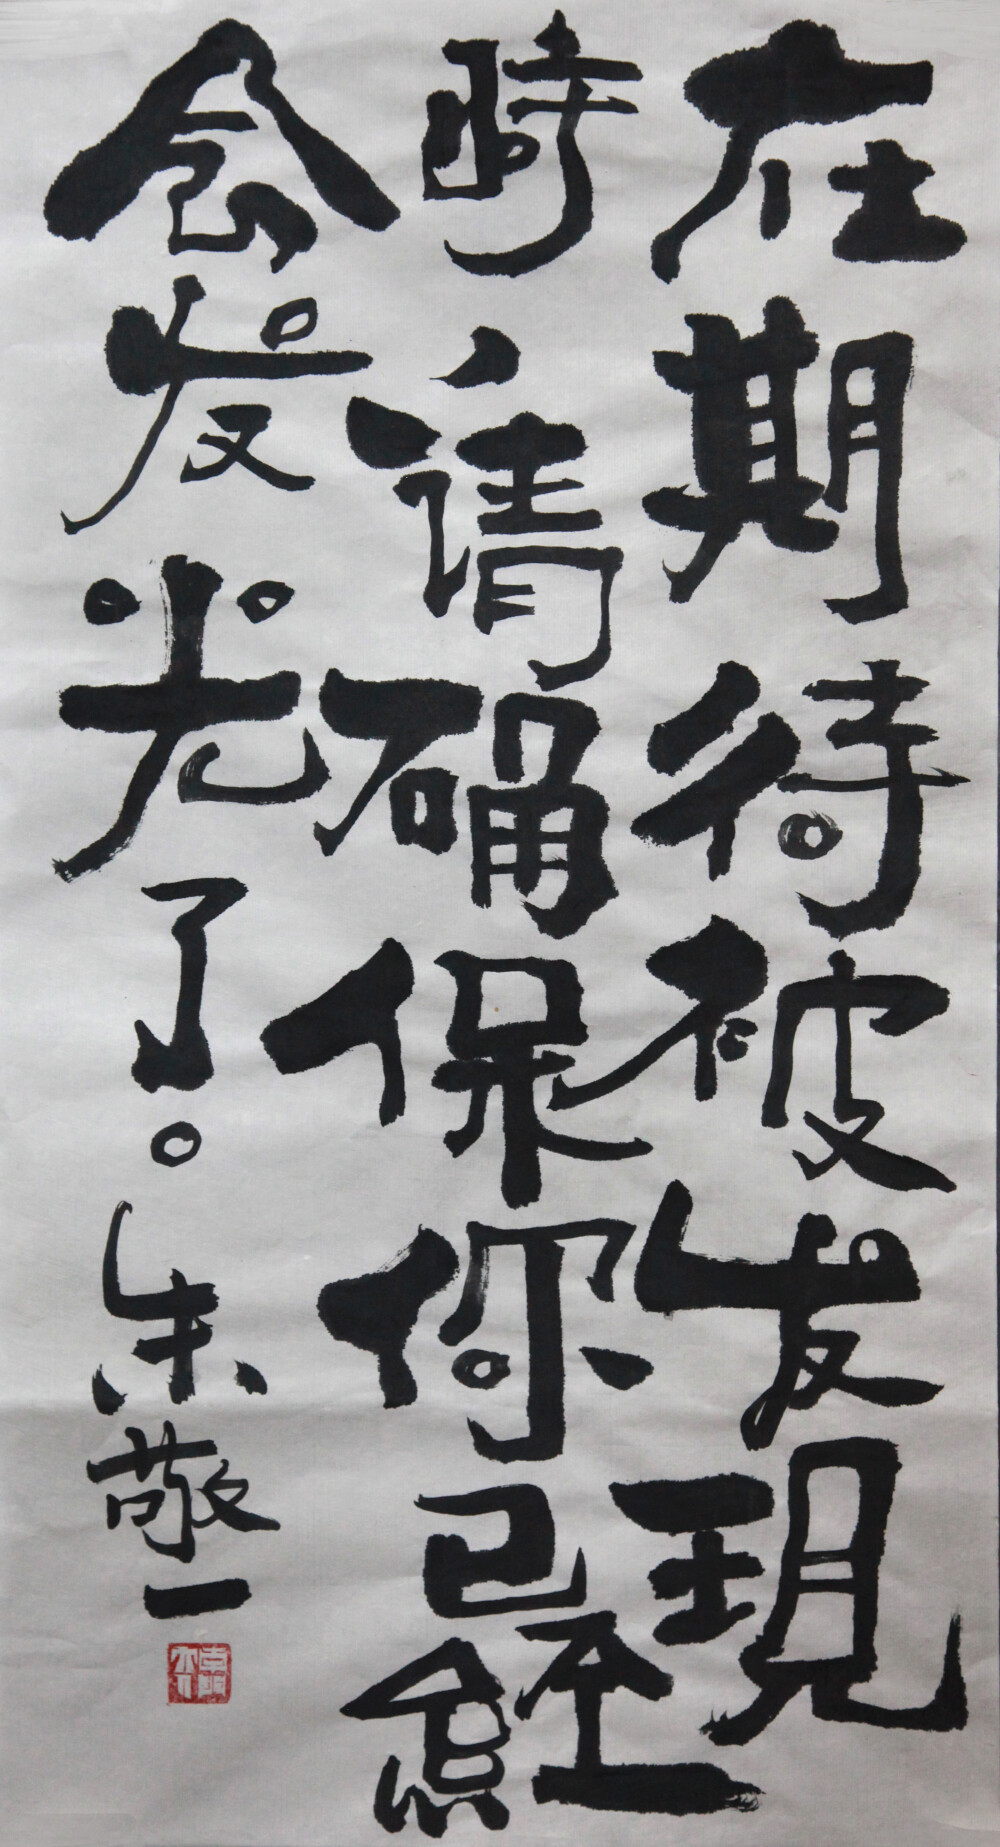 在期待被发現
時请确保你已經
会发光了。
朱敬一